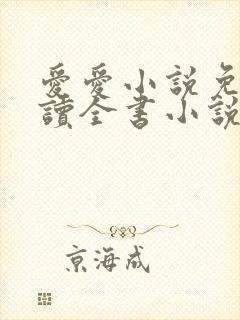 愛愛小説免
讀全書小說
京海成